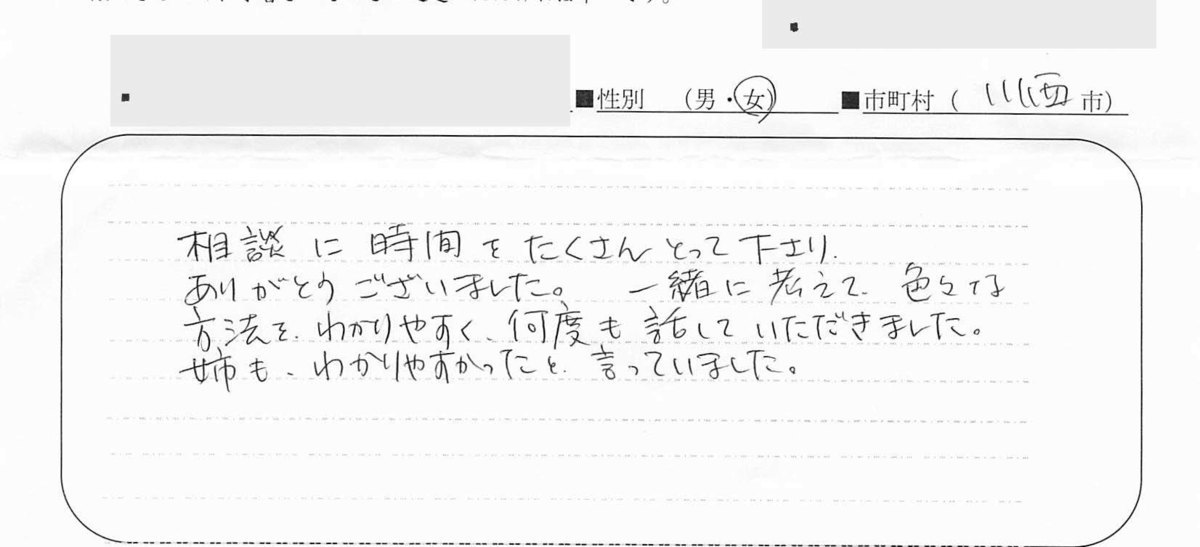 ■性別 (男・女) ■市町村 ( 川西 市)
相談に時間をたくさんとって下さり、
ありがとうございました。 一緒に考えて、色々な
方法を、わかりやすく、何度も話していただきました。
姉も、わかりやすかったと、言っていました。